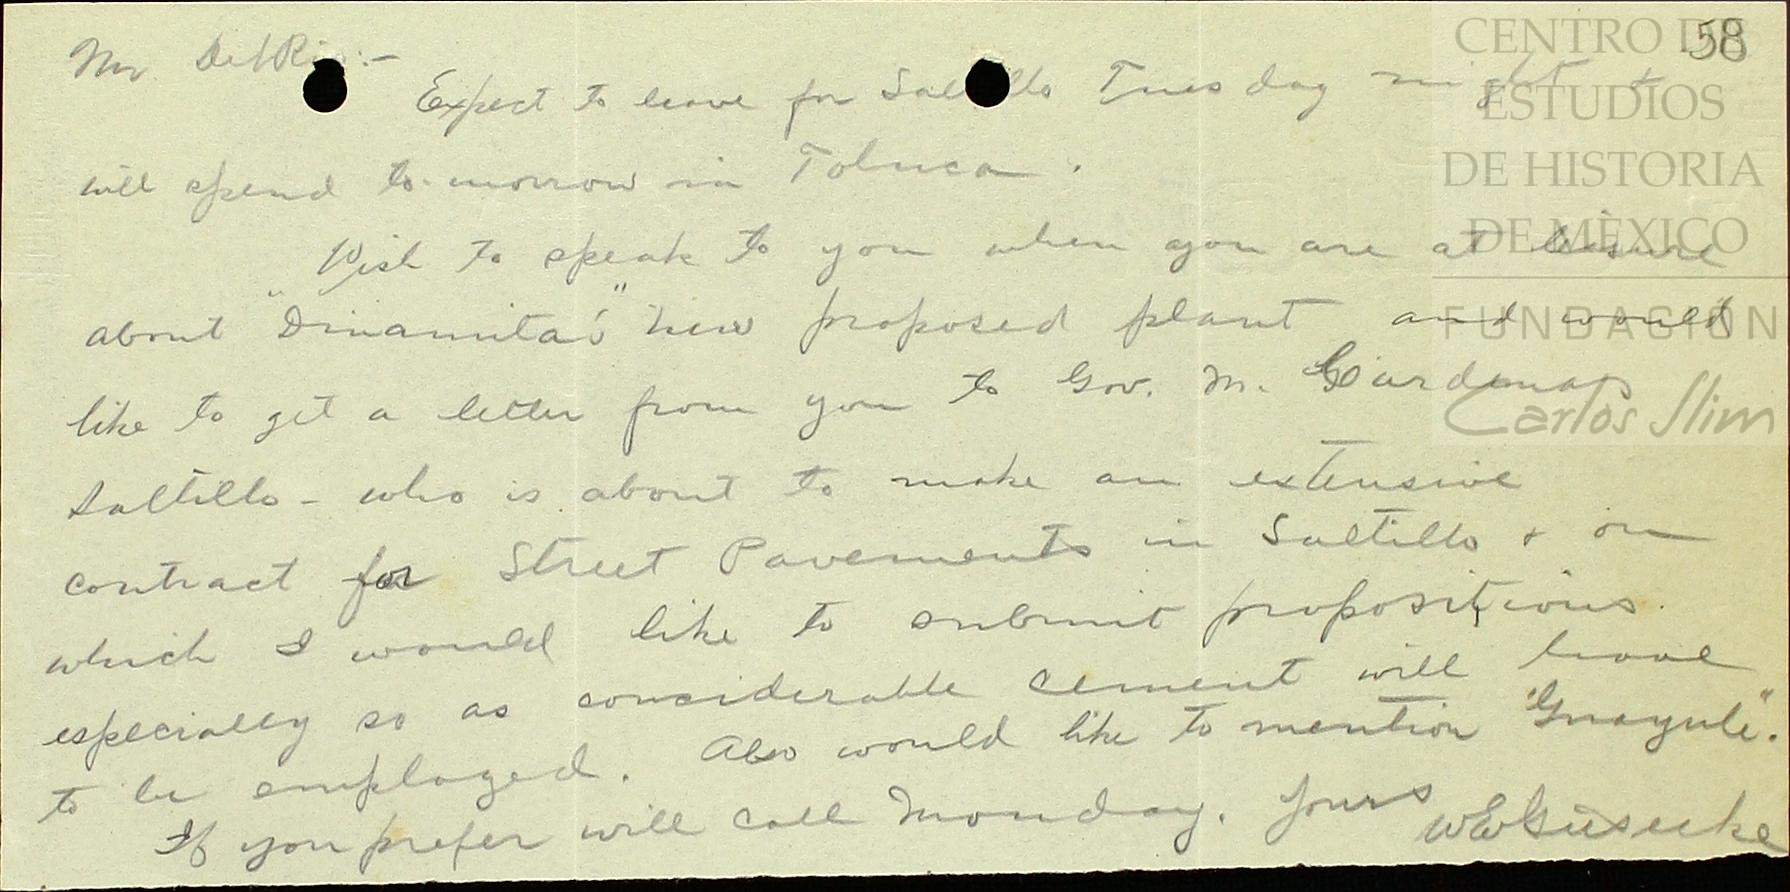 58
Mr. Del Rio:-
Expect to leave for Saltillo Tuesday night &
will spend to-morrow in Toluca.
Wish to speak to you when you are at leisure
about "Dinamita's" new proposed plant and would
like to get a letter from you to Gov. M. Cárdenas
Saltillo - who is about to make an extensive
contract for Street Pavements in Saltillo & on
which I would like to submit propositions.
especially so as considerable cement will have
to be employed. Also would like to mention "Guayule".
If you prefer will call Monday. Yours
CENTRO DE
ESTUDIOS
DE HISTORIA
DE MÉXICO
FUNDACIÓN
Carlos Slim